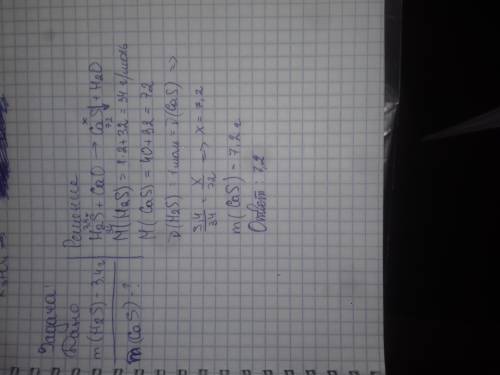 Задача
Дано
m(H₂S) = 3,4 г
m(CaS) - ?
Решение
3,4 x
H₂S + CaO → CaS↓ + H₂O
34 72
M(H₂S) = 1·2+32 = 34 г/моль
M(CaS) = 40+32 = 72
ν(H₂S) = 1 моль = ν(CaS) =>
3,4/34 = x/72 => x = 7,2
m(CaS) = 7,2 г
Ответ: 7,2